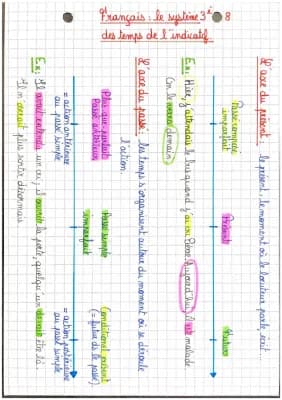 Français : le système 3e 8
des temps de l'indicatif.
L'axe du présent : le présent, le moment où le locuteur parle, écrit...
Passé composé
imparfait
Présent
Futur
Ex : Hier, j'attendais le bus quand j'ai vu Pierre. Aujourd'hui, il est malade.
On le verra demain
L'axe du passé : les temps s'organisent autour du moment où se déroule
l'action.
Plus que parfait
Passé antérieur
Passé simple
imparfait
Conditionnel présent
(= futur ds le passé)
= action antérieure
au passé simple
= action postérieure
au passé simple
Ex : Il avait entendu un cri ; il ouvrit la porte, quelqu'un devait être là.
Il n'oserait plus sortir désormais